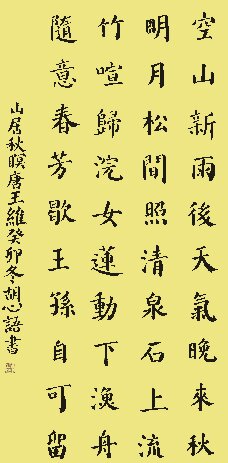 空山新雨後天氣晚來秋
明月松間照清泉石上流
竹喧歸浣女蓮動下漁舟
隨意春芳歇王孫自可留
山居秋暝唐王維癸卯冬胡心語書